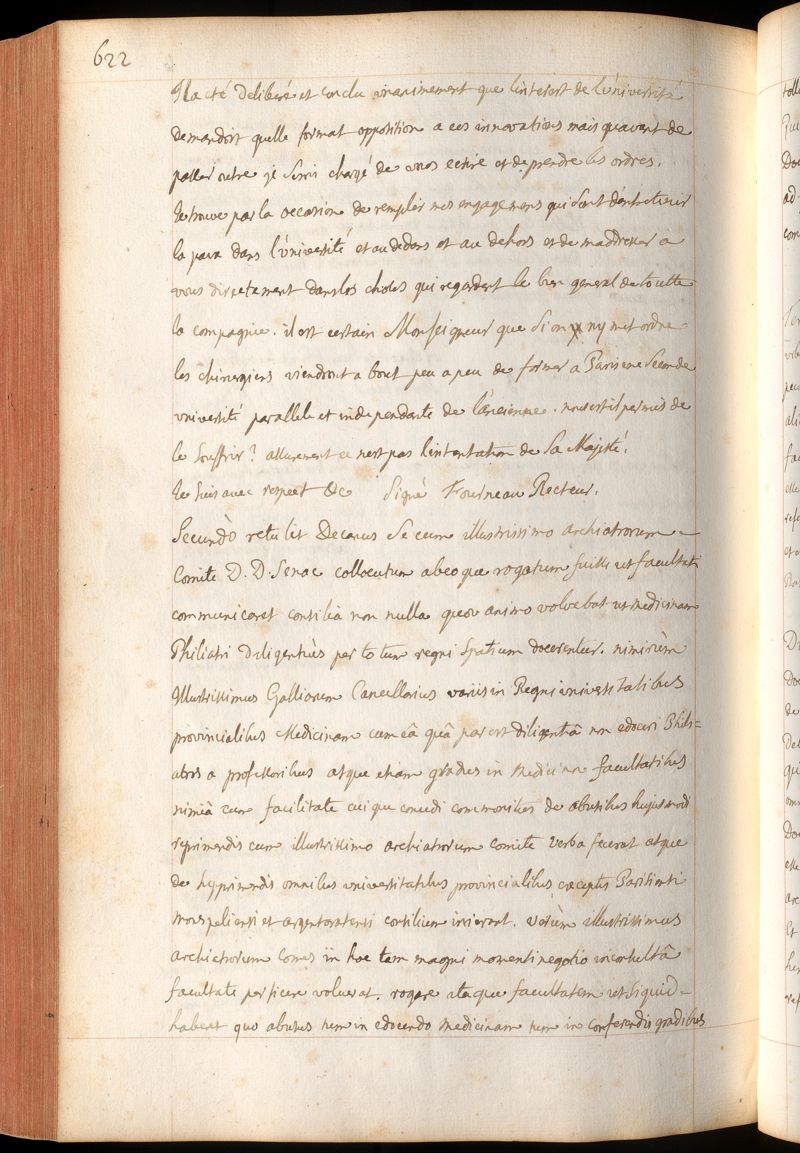 622
Il a été deliberé et conclu unanimement que l'interest de l'université
demandoit quelle format opposition a ces innovations mais quavant de
passer outre je serois chargé de vous ecrire et de prendre les ordres.
Je trouve par la occasion de remplir mes engagemens qui sont d'entretenir
la paix dans l'université et au dedans et au dehors et de m'addresser a
vous directement dans les choses qui regardent le bien general de toutte
la compagnie. il est certain Monseigneur que si on ny met ordre
les chirurgiens viendront a bout peu a peu de former a Paris une seconde
université parallele et independante de l'ancienne. nous est il permis de
le souffrir? assurement ce nest pas l'intentation de Sa Majesté.
Je suis avec respect &c Signé Fourneau Recteur.
Secundò retulit Decanus se cum illustrissimo archiatrorum
Comite D. D. Senac collocutum ab eo que rogatum fuisse ut facultati
communicaret consilia non nulla quæ animo volvebat ut medicinam
Philiatri diligentiùs per totum regni spatium docerentur. nimirùm
Illustrissimus Galliarum Cancellarius variis in Regni universitatibus
provincialibus Medicinam cum eâ quâ par est diligentiâ non edoceri Phili=
atros a professoribus atque etiam gradus in medicinæ facultatibus
nimiâ cum facilitate cuique concedi commonitus de abusibus hujusmodi
reprimendis cum illustrissimo archiatrorum comite verba fecerat atque
de supprimendis omnibus universitatibus provincialibus exceptis Parisiensi
monspeliensi et argentoratensi consilium inierant. verùm illustrissimus
archiatrorum comes in hoc tam magni momenti negotio inconsultâ
facultate perficere voluerat. rogare itaque facultatem ut siquid
haberet quo abusus tum in edocendo medicinam tum in conferendis gradibus